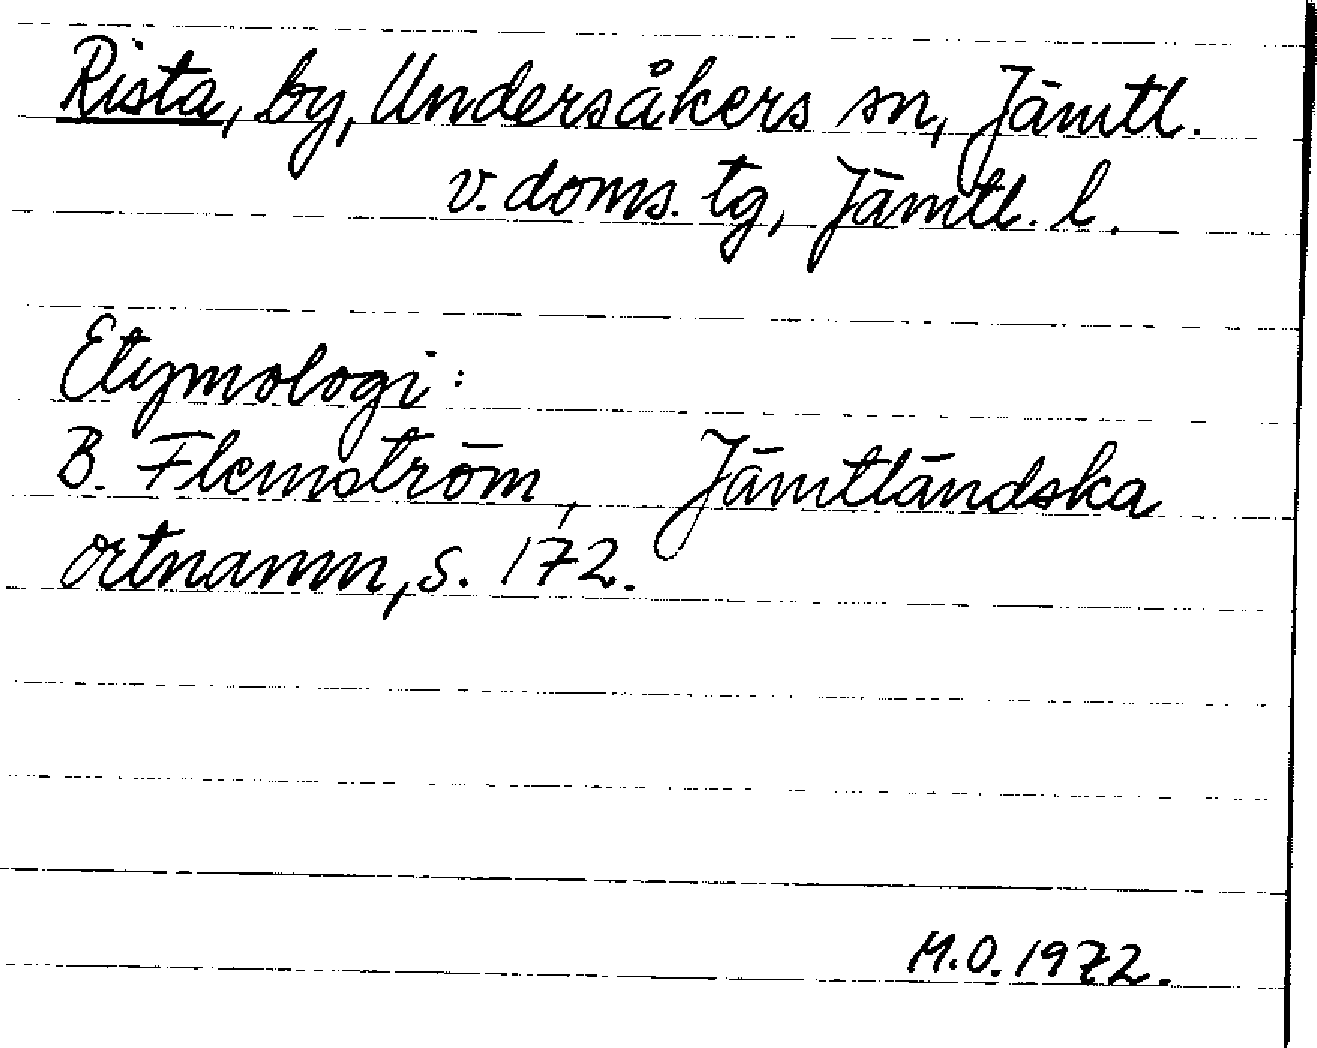 Rista, by, Undersåkers sn, Jämtl.
v. doms. tg, Jämtl. l.
Etymologi:
B. Flemström, Jämtländska
ortnamn, s. 172.
M.O. 1972.